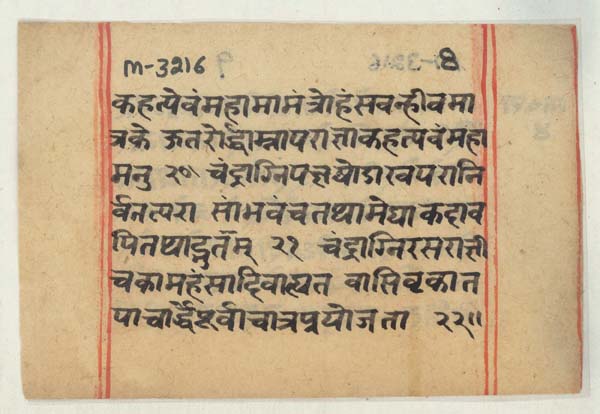 M-3216 8
कहत्येवंमहामामंत्रोहंसवन्हीवमा
त्रके ऊतरोर्द्वाम्नापराज्ञाकहत्पवंमहा
मनु २० चंद्राग्निपज्ञषोडारवपरानि
र्वनत्परा सांभवंचतथामेधाकहाव
पितथाद्भुतम् २१ चंद्राग्निरसराज्ञी
चकामहंसादिवात्पत वासिवृकात
पाचार्द्धेपूर्वाचात्रप्रयोजता २२॥